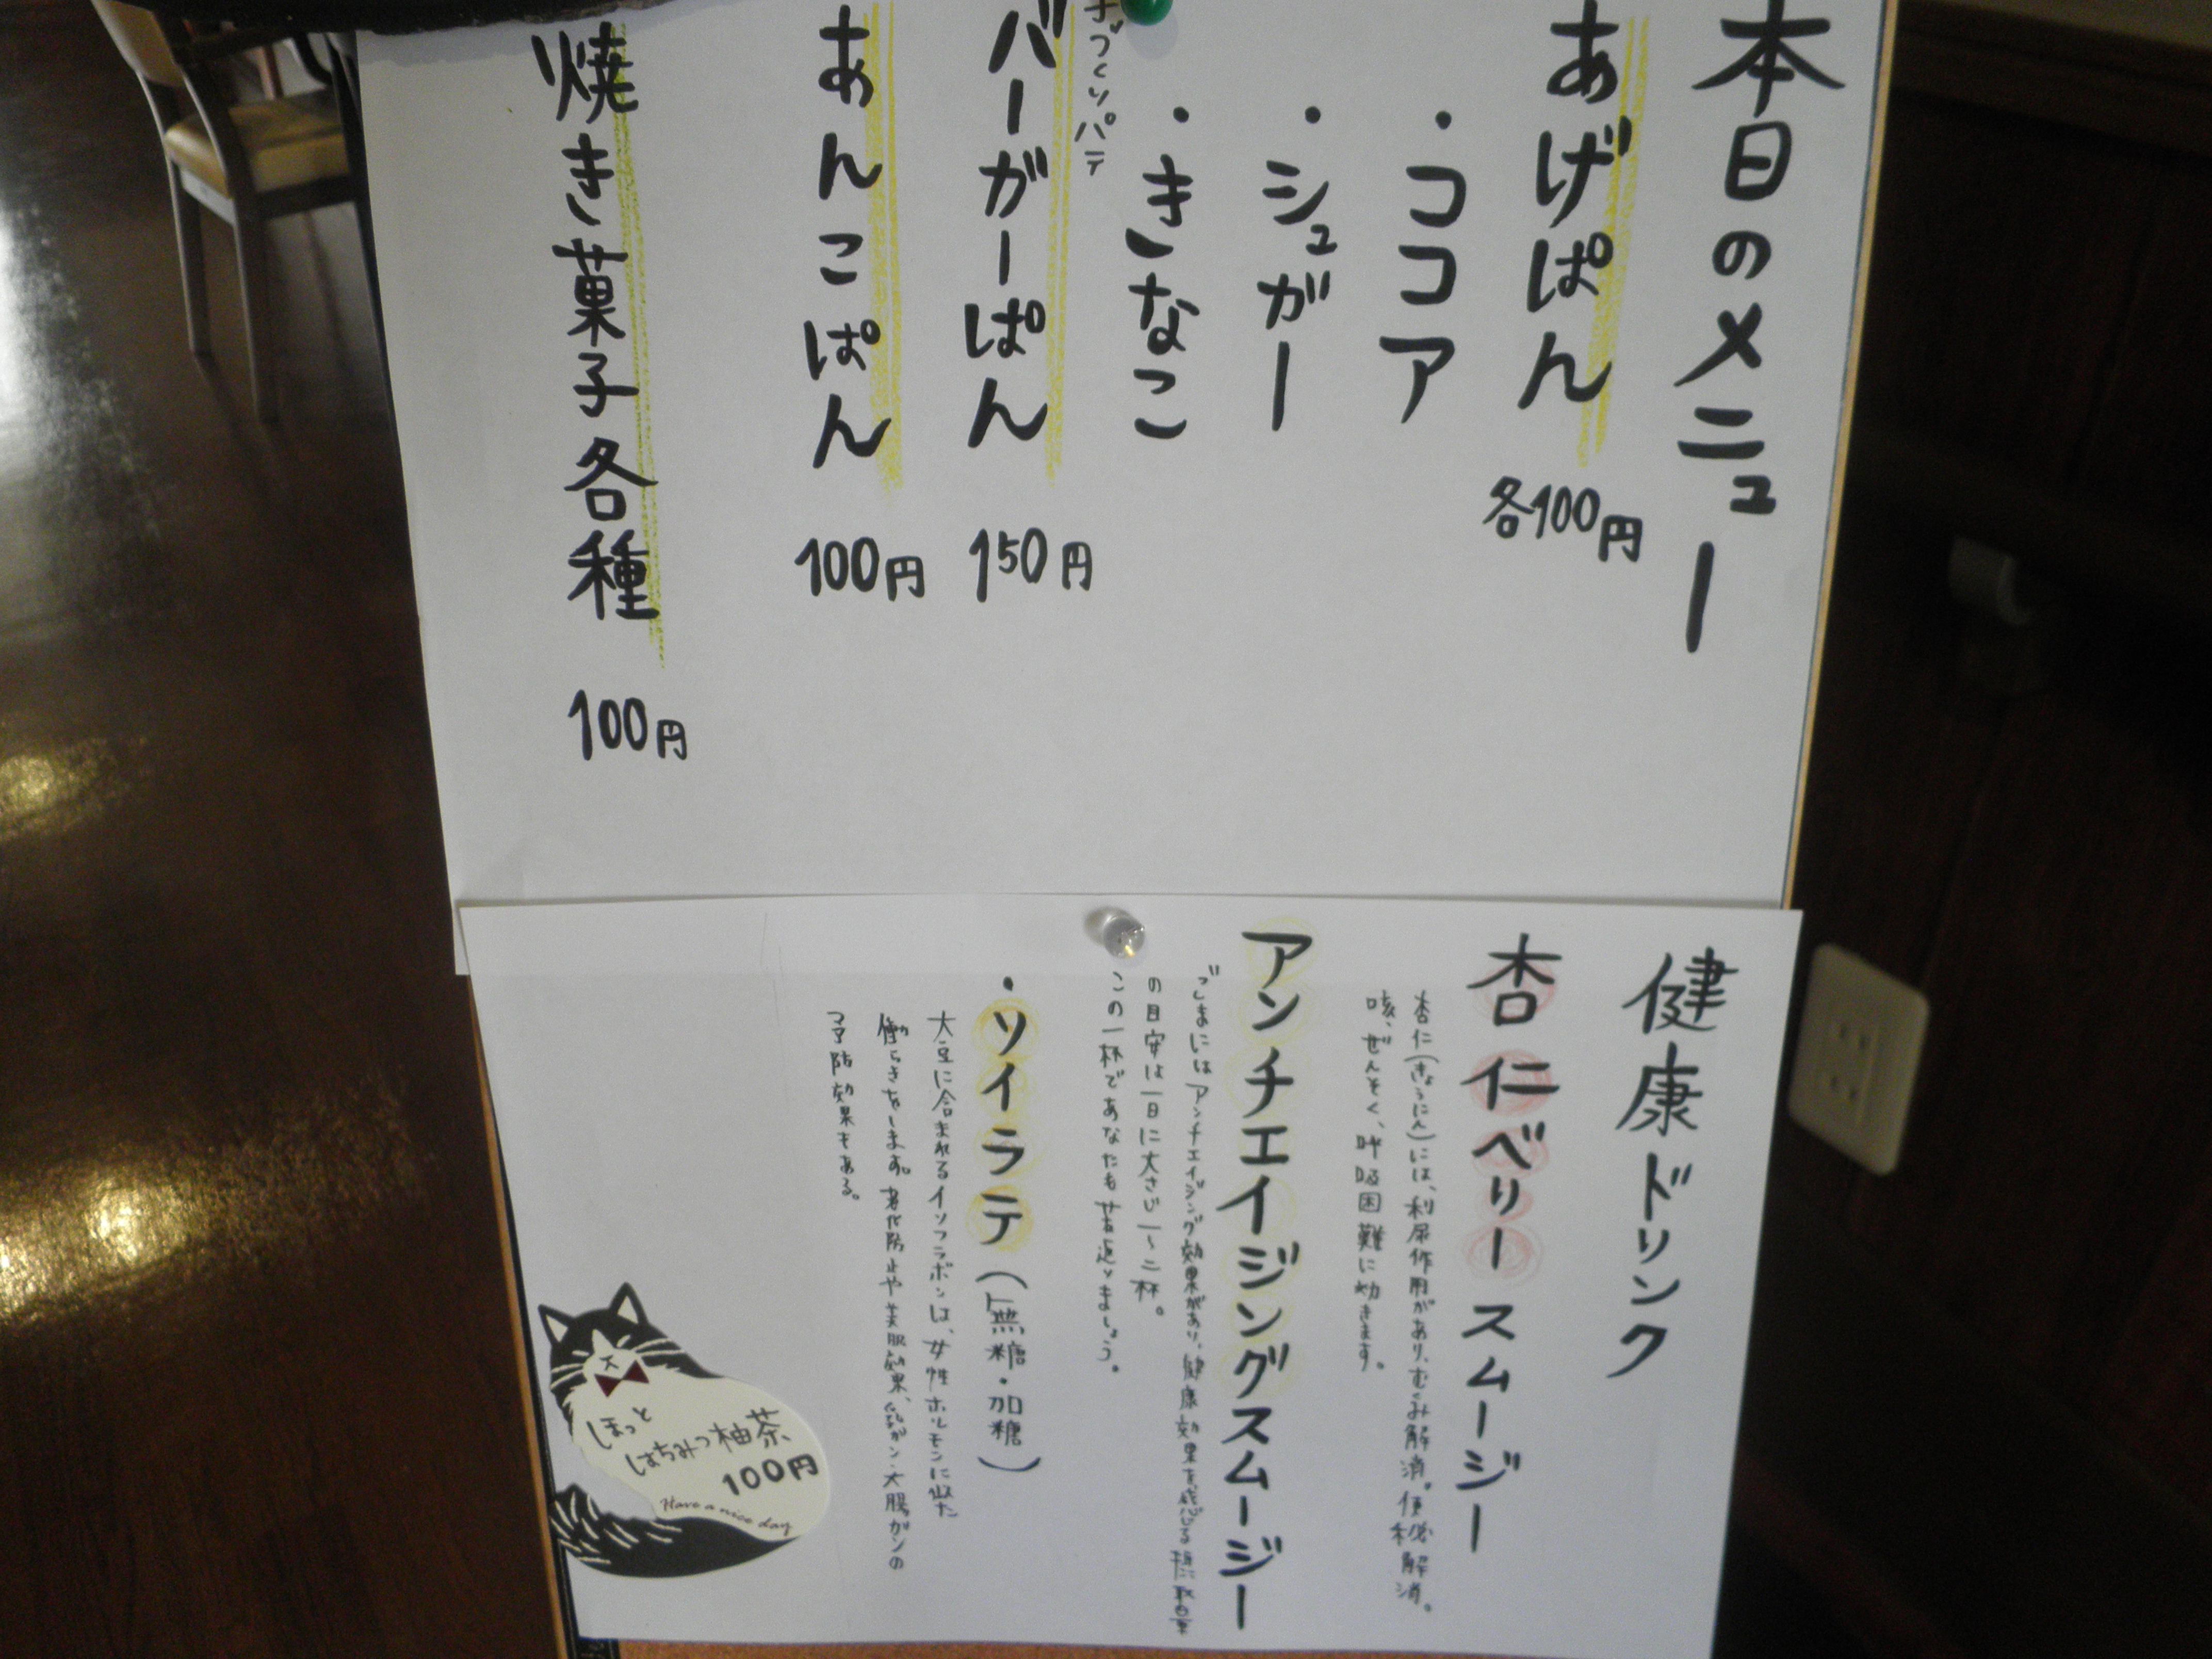 本日のメニュー
あげぱん 各100円
・ココア
・シュガー
・きなこ
手づくりパテ
バーガーぱん 150円
あんこぱん 100円
焼き菓子各種 100円
健康ドリンク
杏仁ベリースムージー
杏仁(きょうにん)には、利尿作用があり、むくみ解消。便秘解消。
咳、ぜんそく、呼吸困難に効きます。
アンチエイジングスムージー
ごまにはアンチエイジング効果があり、健康効果を感じる
の目安は一日に大さじ一～二杯。
この一杯であなたも若返りましょう。
・ソイラテ(無糖・加糖)
大豆に含まれるイソフラボンは、女性ホルモンに似た
働らきをします。老化防止や美肌効果、乳ガン・大腸ガンの
予防効果もある。
ほっと
はちみつ柚茶
100円
Have a nice day